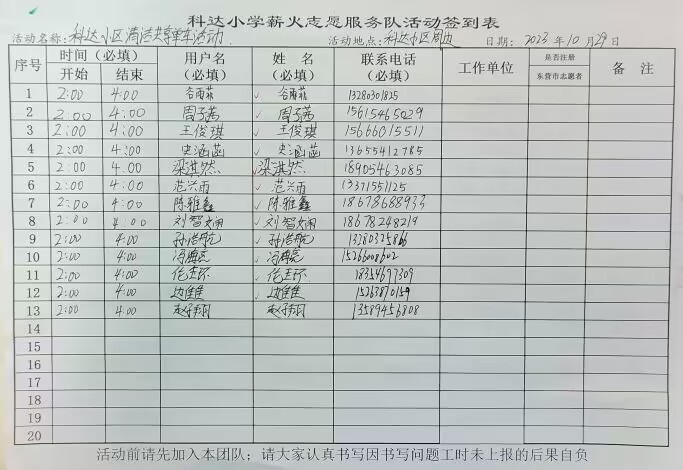 科达小学薪火志愿服务队活动签到表
活动名称: 科达小区清洁共享单车活动 活动地点: 科达小区周边 日期: 2023 年 10 月 29 日
序号 时间（必填） 用户名 姓 名 联系电话 工作单位 是否注册 备 注
开始 结束 （必填） （必填） （必填） 东营市志愿者
1 2:00 4:00 13280301825
2 2:00 4:00 周子茜 ✓ 周子茜 15615465029
3 2:00 4:00 王俊琪 ✓ 王俊琪 15666015511
4 2:00 4:00 史涵菡 ✓ 史涵菡 13655412785
5 2:00 4:00 梁淇然 ✓ 梁淇然 18905463085
6 2:00 4:00 范兴雨 ✓ 范兴雨 13371551125
7 2:00 4:00 陈雅鑫 ✓ 陈雅鑫 18678688933
8 2:00 4:00 刘智文 ✓ 刘智文 18678248219
9 2:00 4:00 孙浩航 ✓ 孙浩航
10 2:00 4:00 15266008602
11 2:00 4:00 18354677309
12 2:00 4:00 15263870159
13 2:00 4:00 赵子翔 ✓ 赵子翔 13589456808
14
15
16
17
18
19
20
活动前请先加入本团队；请大家认真书写因书写问题工时未上报的后果自负